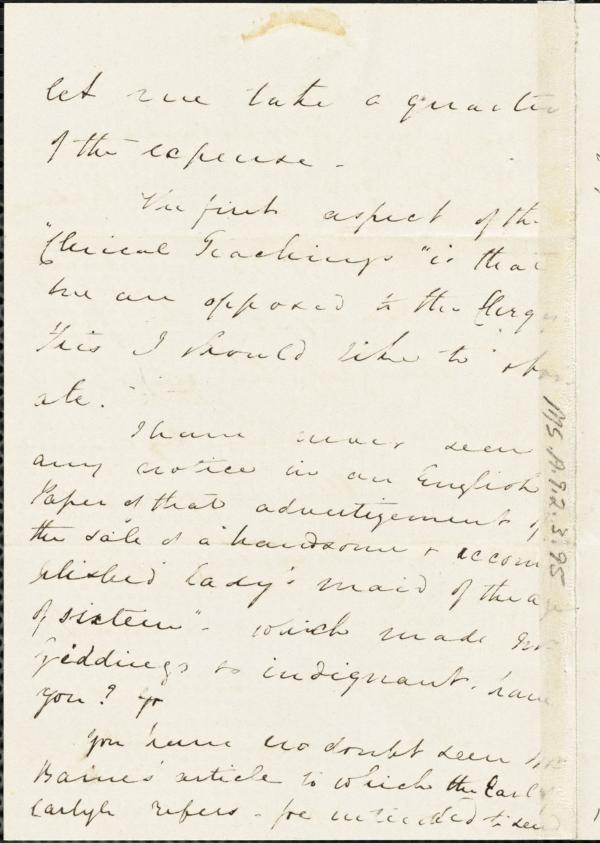 let me take a quarter
of the expense -
The first aspect of the
"Clerical Teachings" is that
we are opposed to the Clergy
This I should like to
ate.
I have never seen
any notice in an English
Paper of that advertizement of
the sale of a "handsome & accom
plished Lady's maid of the a
of sixteen" - which made Mr
Giddings so indignant. have
you?
You have no doubt seen Mr
Baines' article to which the Earl of
Carlyle refers - he intended to send
MS. A.9.2.3.95